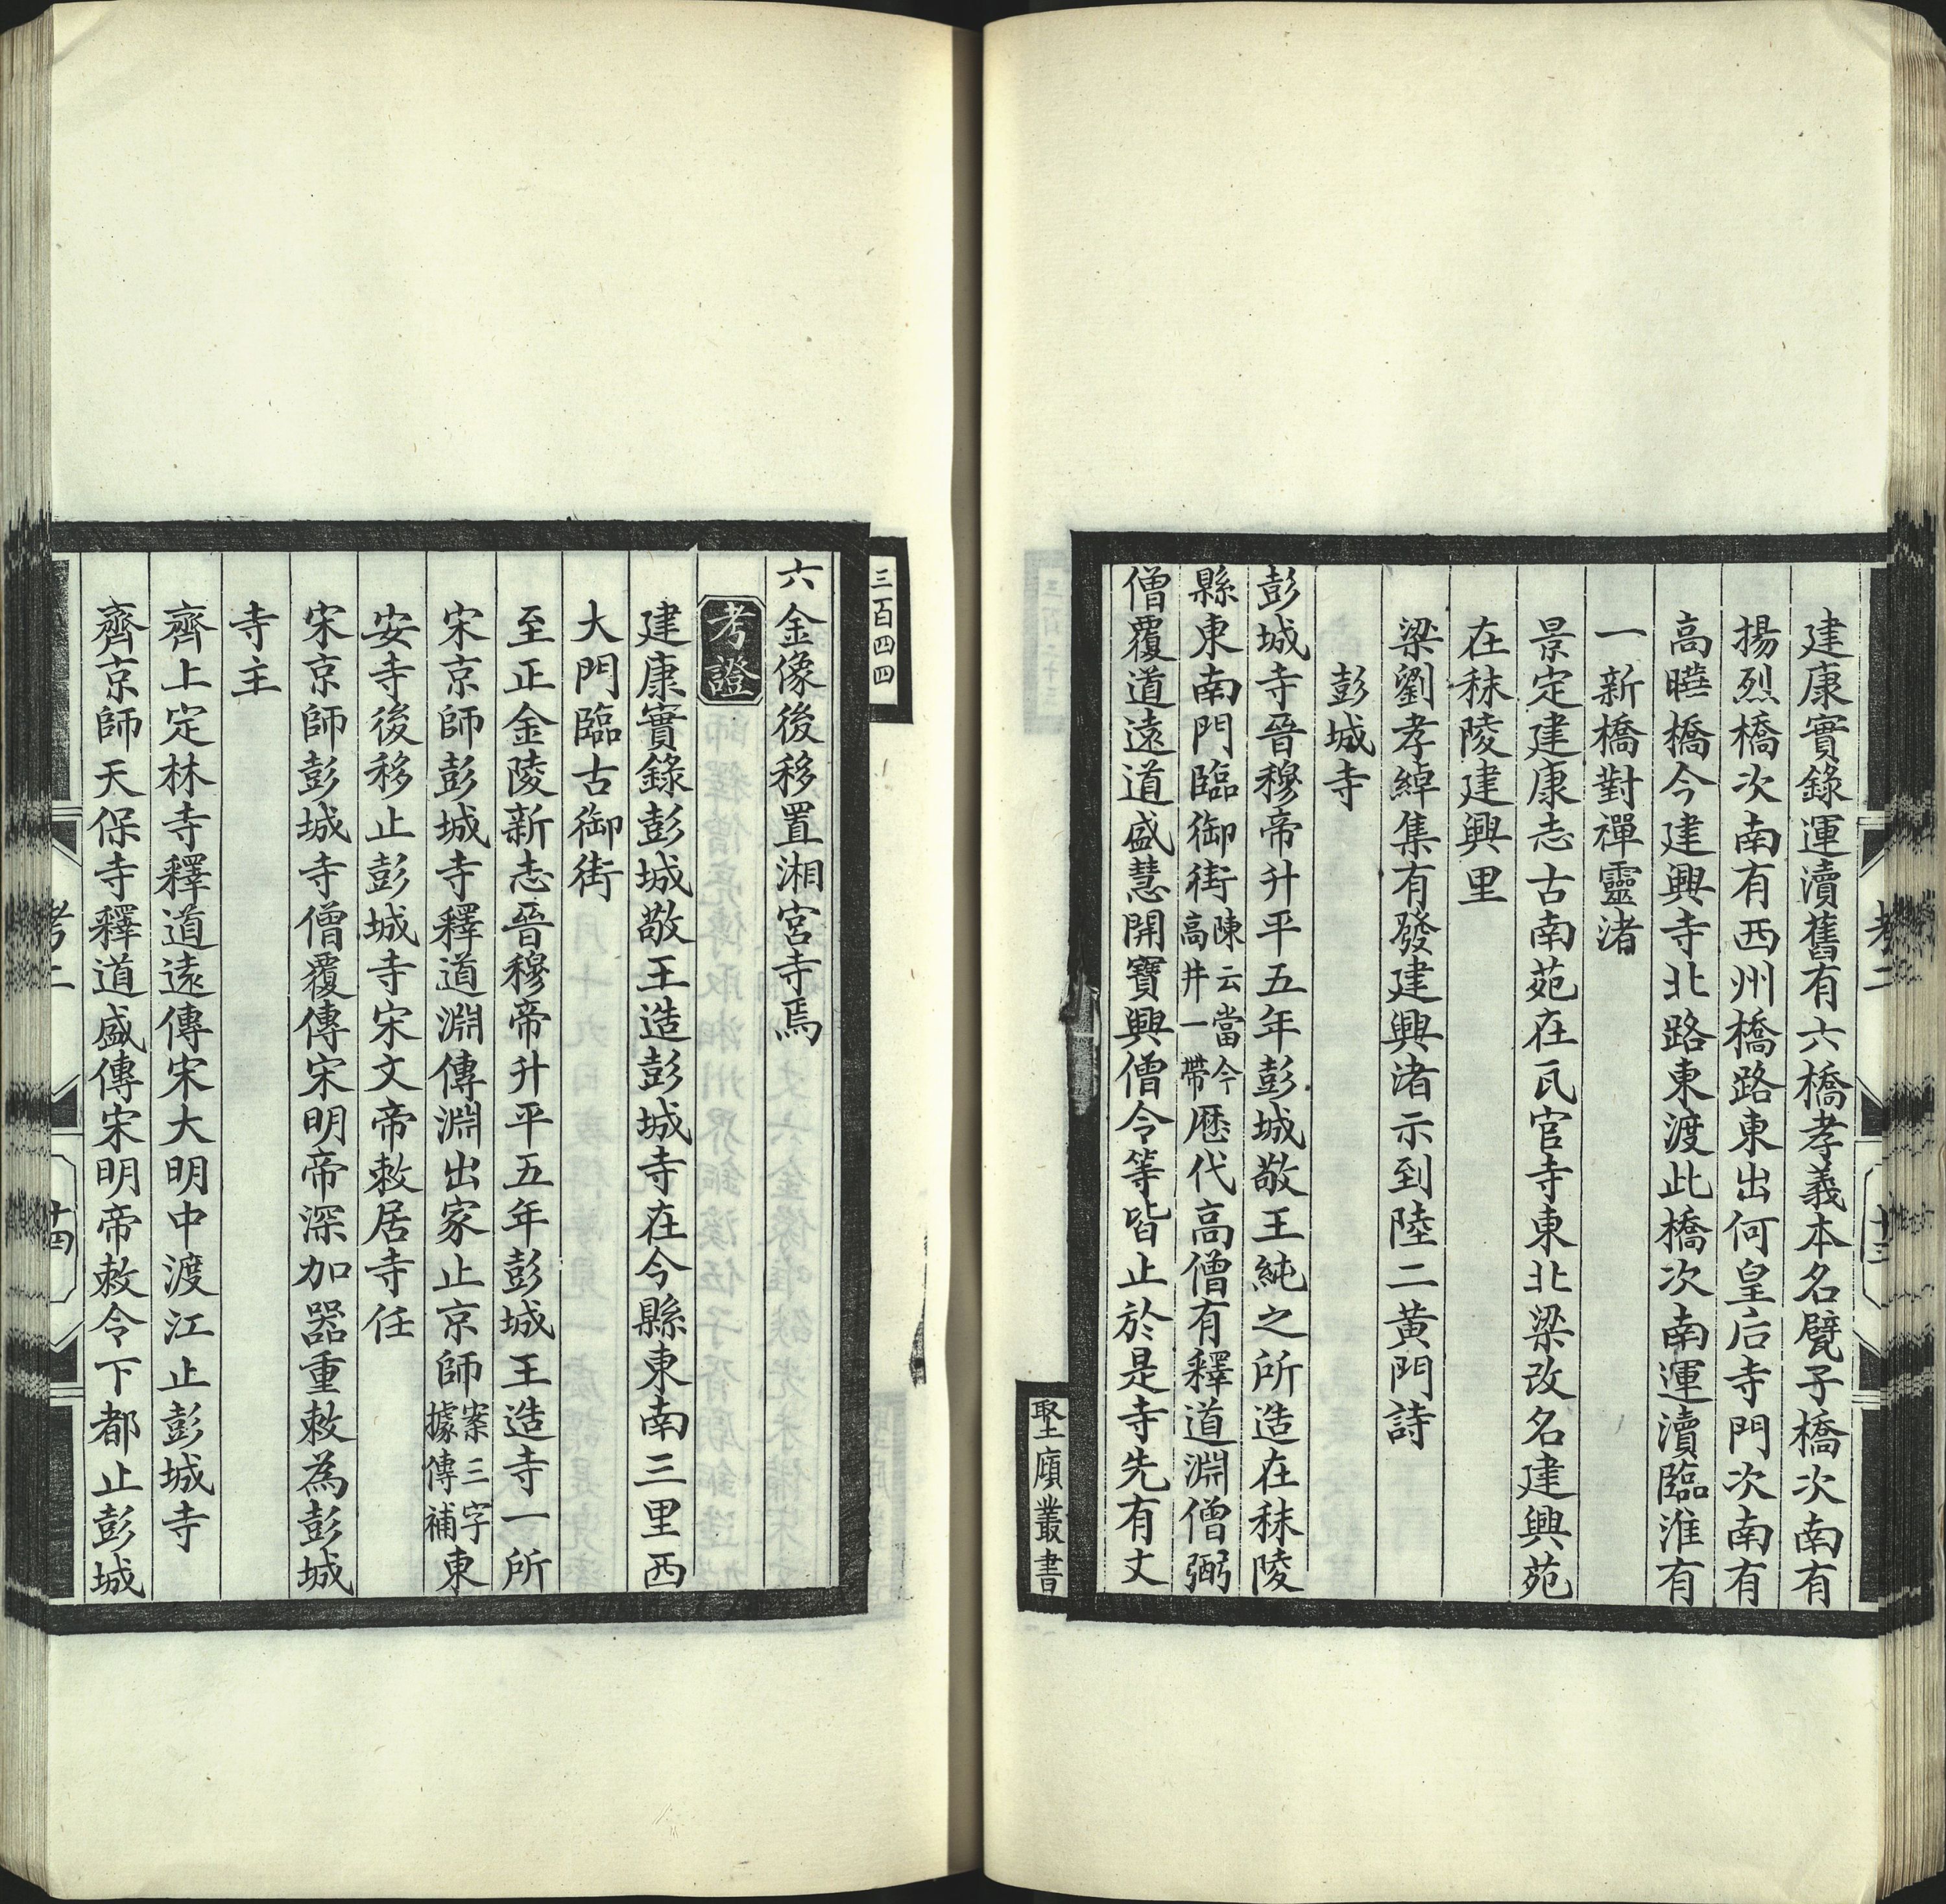 建康實錄運瀆舊有六橋孝義本名甓子橋次南有
揚烈橋次南有西州橋路東出何皇后寺門次南有
高曅橋今建興寺北路東渡此橋次南運瀆臨淮有
一新橋對禪靈渚
景定建康志古南苑在瓦官寺東北梁改名建興苑
在秣陵建興里
梁劉孝綽集有發建興渚示到陸二黃門詩
彭城寺
彭城寺晉穆帝升平五年彭城敬王純之所造在秣陵
縣東南門臨御街陳云當今高井一帶歷代高僧有釋道淵僧弼
僧覆道遠道盛慧開寶興僧令等皆止於是寺先有丈
堅頎叢書
三百四四
六金像後移置湘宮寺焉
考證
建康實錄彭城敬王造彭城寺在今縣東南三里西
大門臨古御街
至正金陵新志晉穆帝升平五年彭城王造寺一所
宋京師彭城寺釋道淵傳淵出家止京師案三字據傳補東
安寺後移止彭城寺宋文帝敕居寺任
宋京師彭城寺僧覆傳宋明帝深加器重敕為彭城
寺主
齊上定林寺釋道遠傳宋大明中渡江止彭城寺
齊京師天保寺釋道盛傳宋明帝敕令下都止彭城
考二
十四